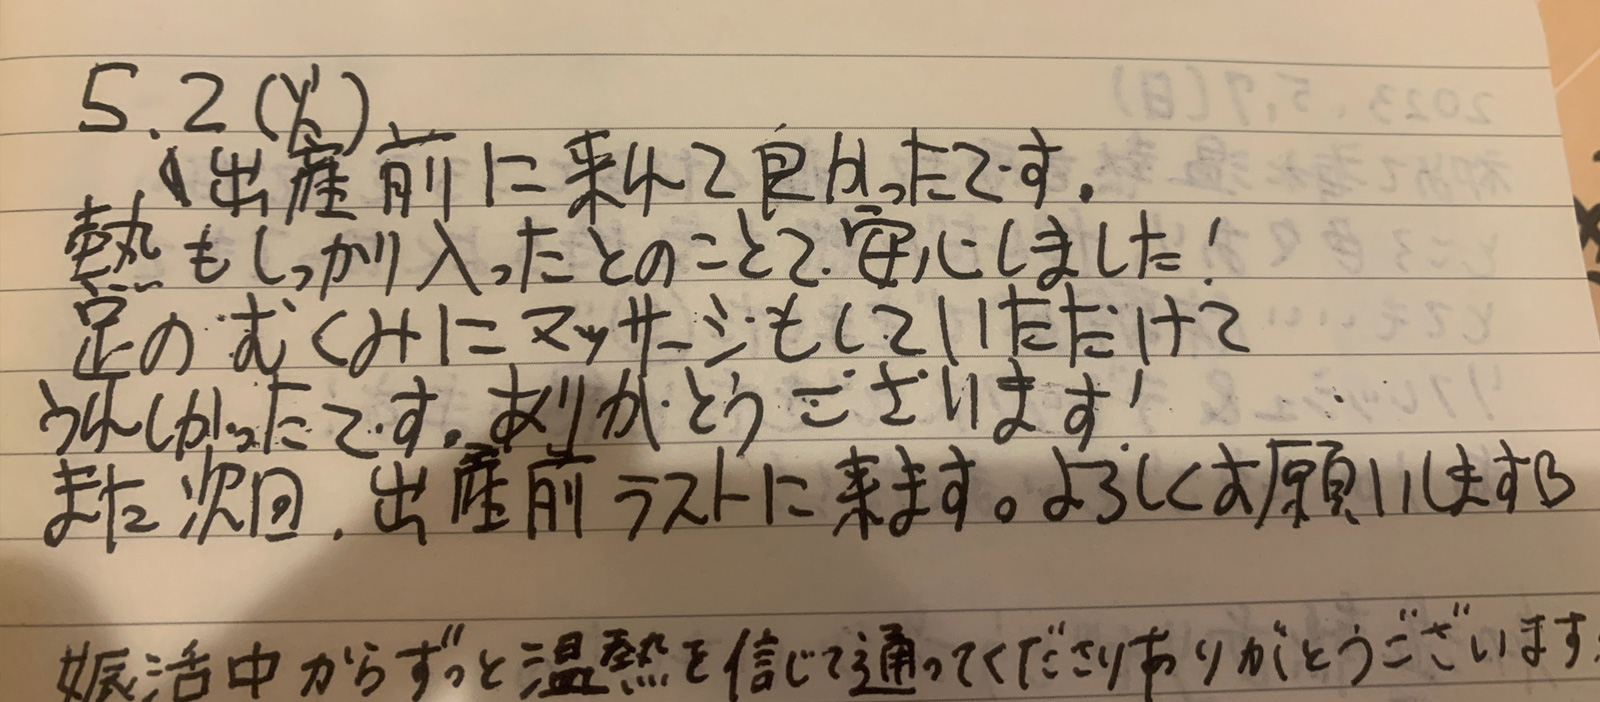 5.2(火)
出産前に来れて良かったです.
熱もしっかり入ったとのことで安心しました!
足のむくみにマッサージもしていただけて
うれしかったです。ありがとうございます!
また次回,出産前ラストに来ます。よろしくお願いします
妊活中からずっと温熱を信じて通ってくださりありがとうございます
2023.5,7(日)